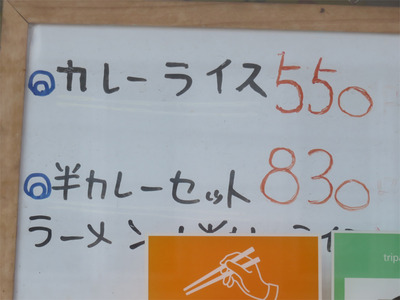 ◎カレーライス550
◎半カレーセット830
ラーメン
trip